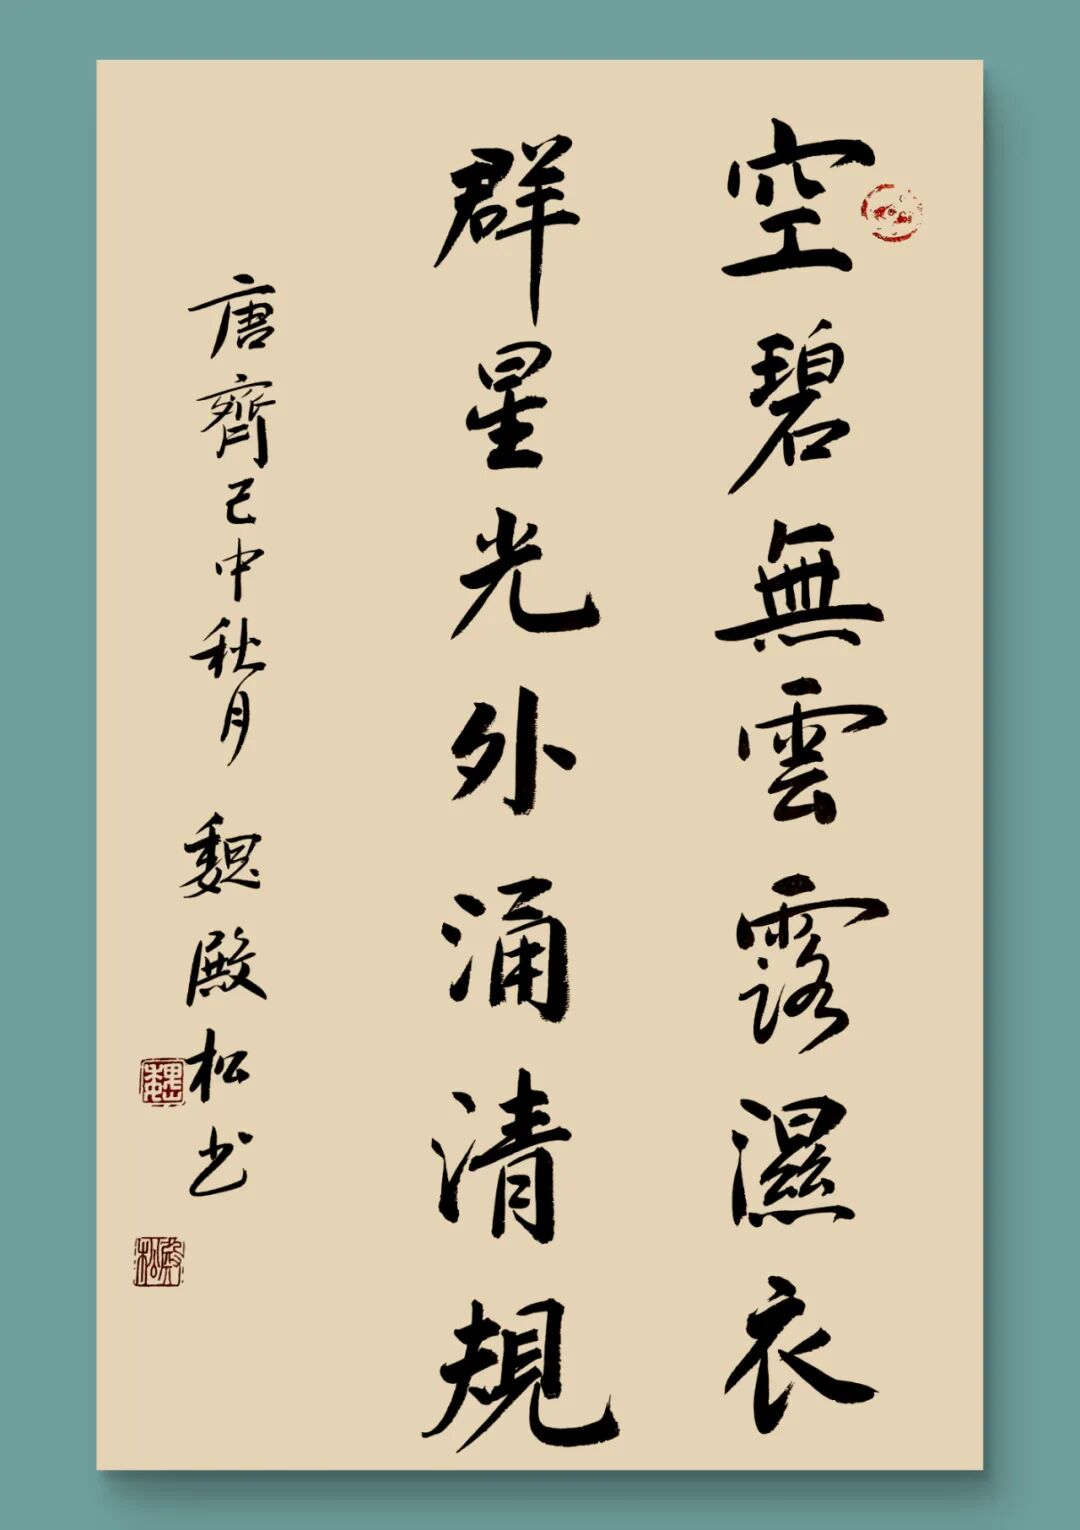 空碧無雲露濕衣
群星光外涌清規
唐齊己中秋月 魏殿松书
魏
殿松